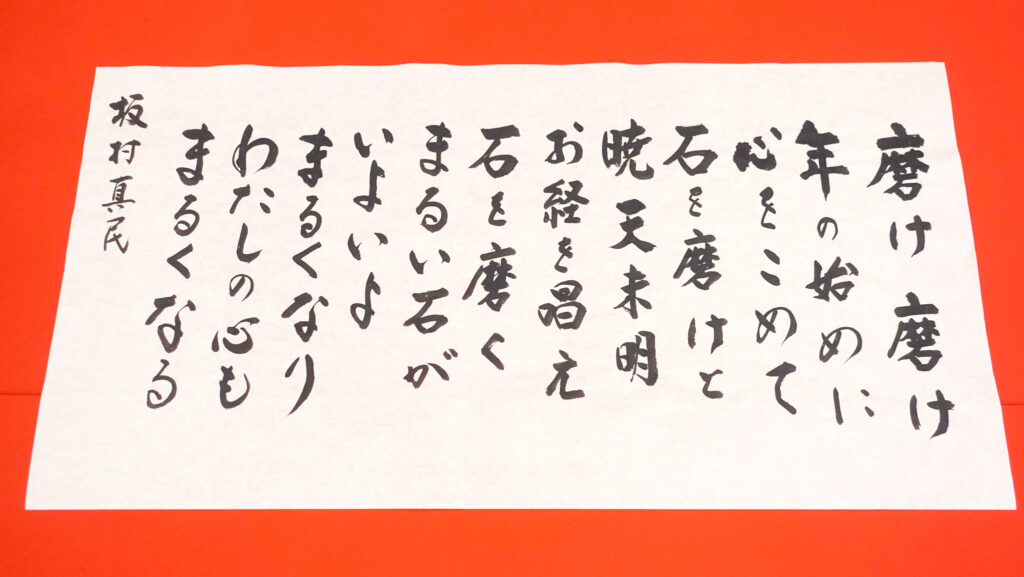 磨け磨け
年の始めに
心をこめて
石を磨けと
暁天未明
お経を唱え
石を磨く
まるい石が
いよいよ
まるくなり
わたしの心も
まるくなる
坂村真民